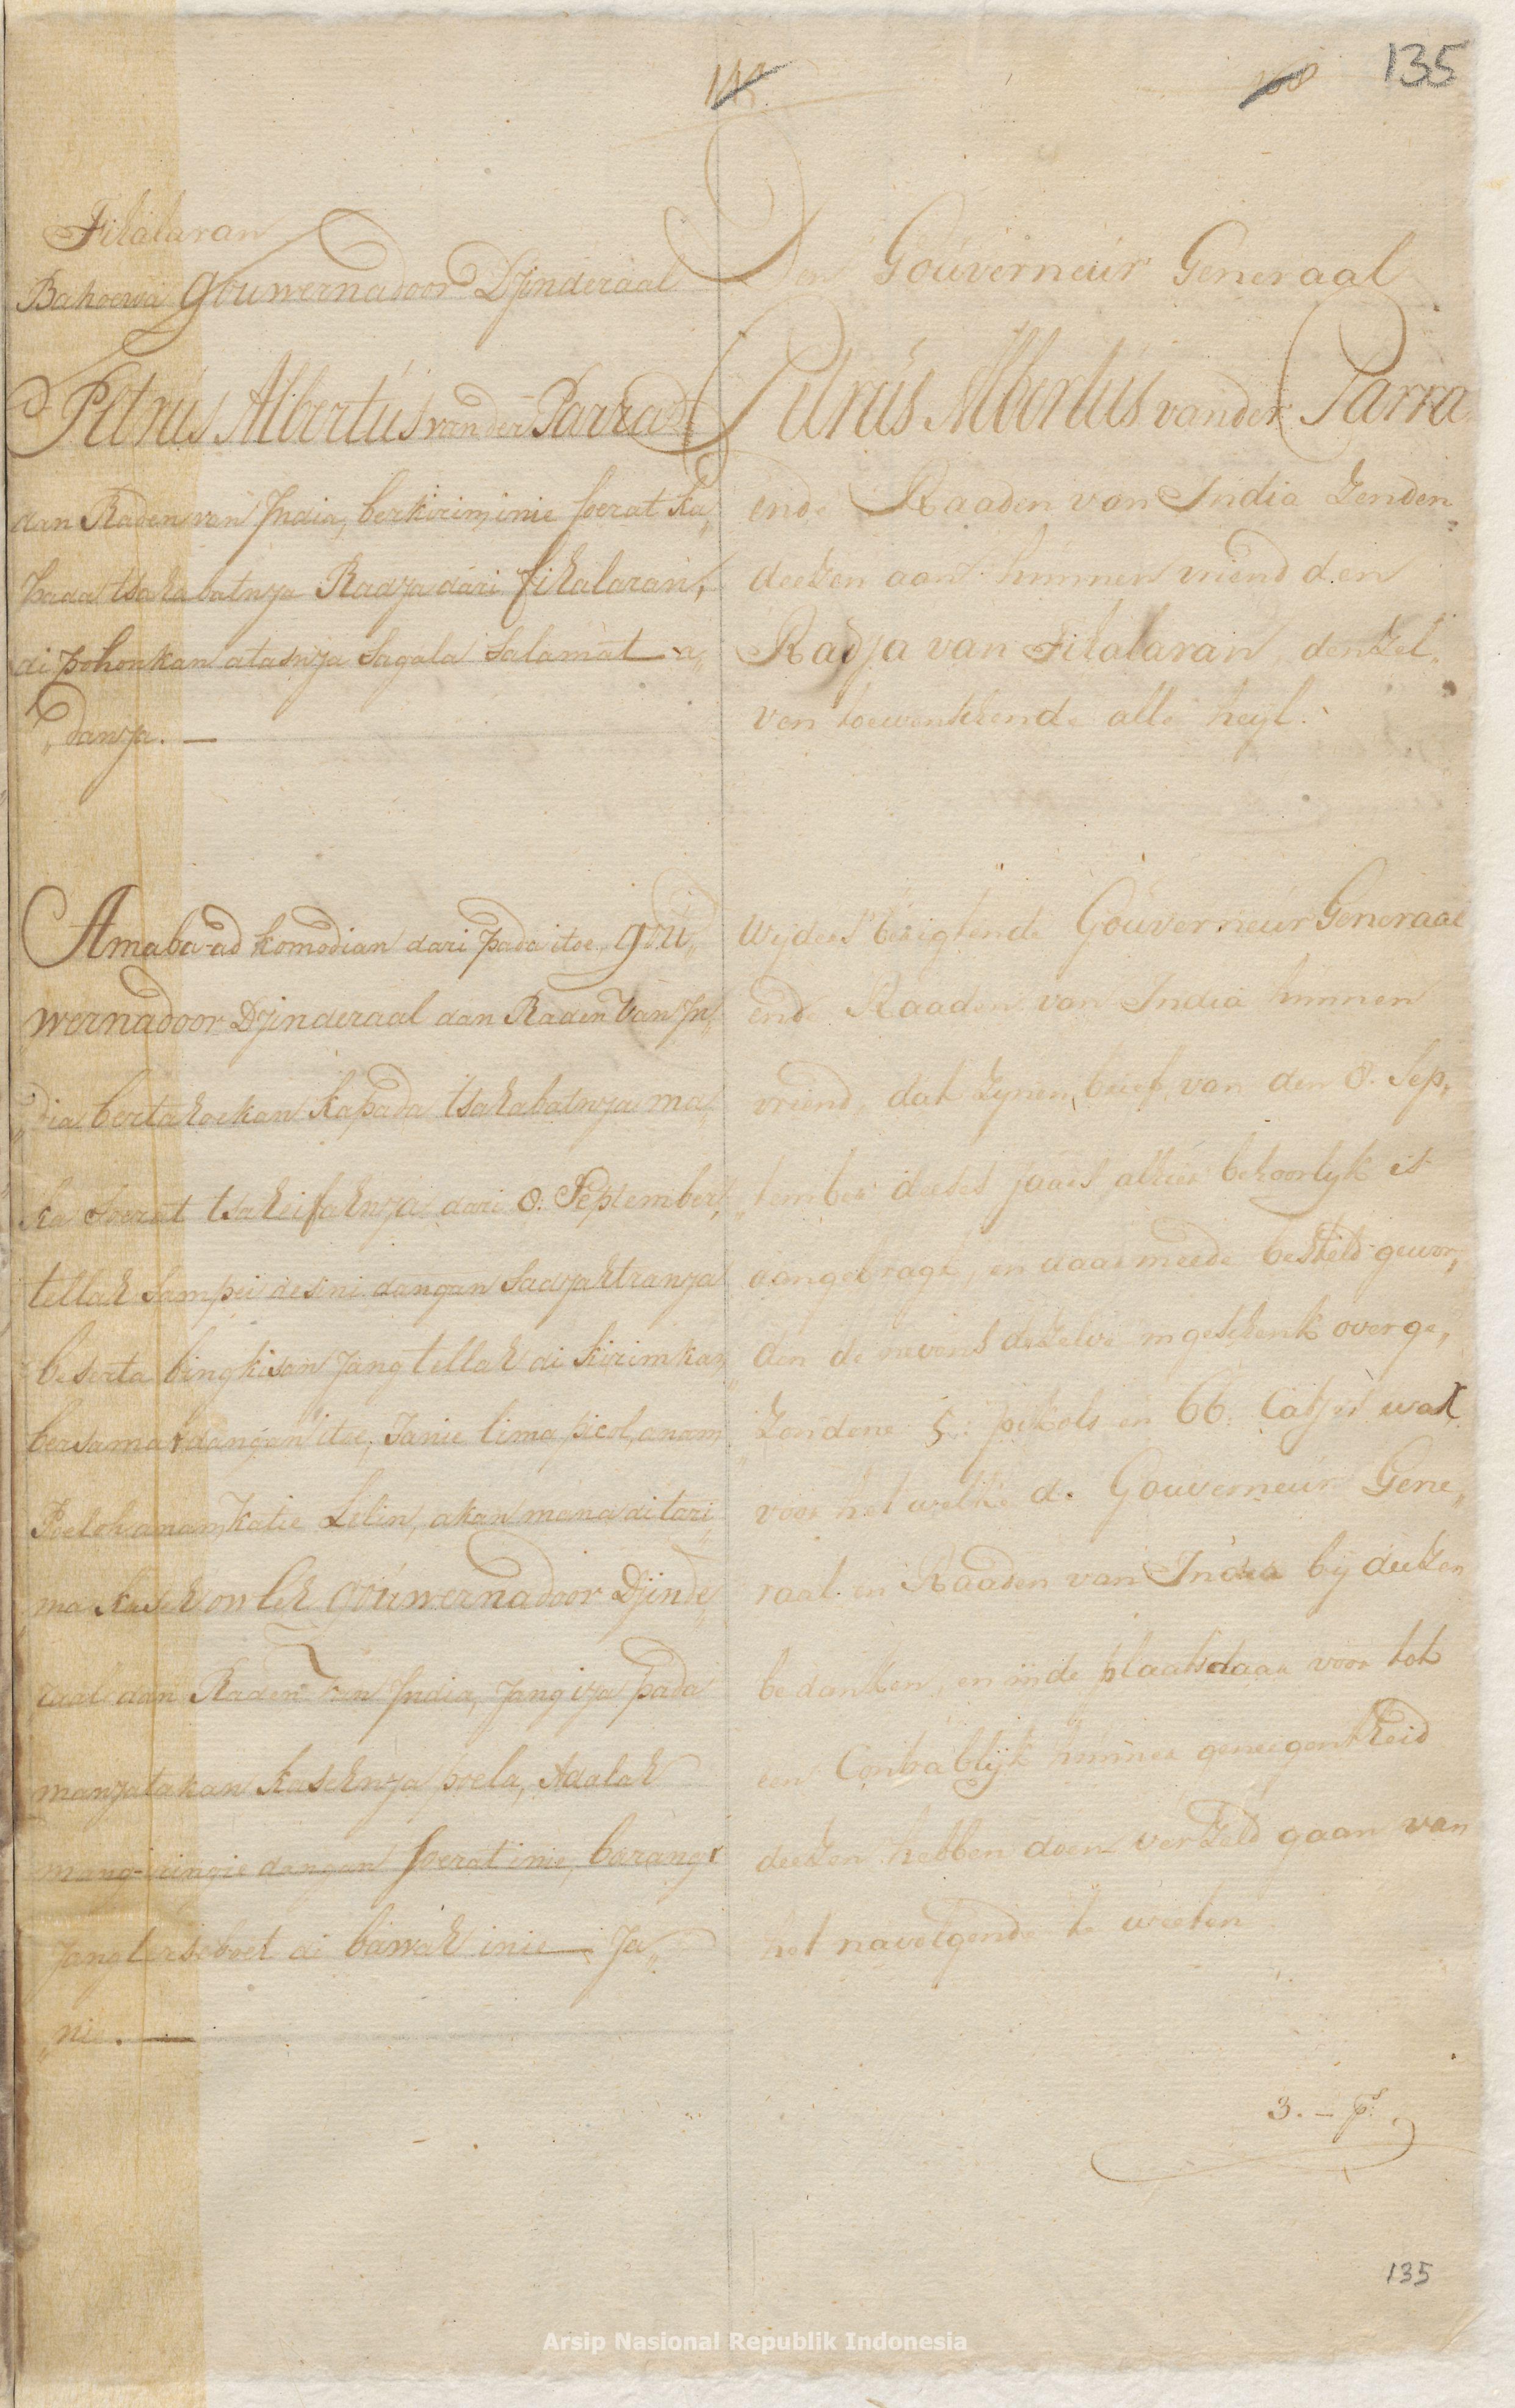 135
Fikalaran
Bahoewa Gouwernadoor Djinderaal
Petrus Albertus van der Parra
dan Raden van India, berkirim inie soerat ka„
pada tsahabatnja Radja dari Fikalaran,
di pohonkan atasnja sagala salamat a„
„danja. —
Amaba-ad komodian dari pada itoe gou„
wernadoor Djinderaal dan Raden van In„
„dia bertahoekan kapada tsahabatnja ma„
ka soerat tsaheifahnja dari 8: September,
tellah sampei desini dangan sadjahtranja
beserta bingkisan jang tellah di kirimkan
bersama dangan itoe, Janie lima picol, anam
Poeloh anam, Katie Lilin, akan mana di tari„
ma kaseh onleh gouwernadoor Djinde„
raal dan Raden van India, jang ija pada
manjatakan kasehnja poela, Adalah
mang-iringie dangan soerat inie, barang
jang terseboet di bawah inie — Ja„
„nie. —
Den Gouverneur Generaal
Petrus Albertus vander Parra
ende Raaden van India Zenden
deezen aan hunnen vriend den
Radja van Fikalaran, denzel„
ven toewenschende alle heijl.
Wijders berigtende Gouverneur Generaal
ende Raaden van India hunnen
vriend, dat Zijnen brief van den 8. Sep„
„tember deeses jaars alhier behoorlyk is
aangebragt, en daar meede besteld gewor„
den de nevens dezelve in geschenk overge„
„Zondene 5: pikols en 66. Catjes wax
voor het welke de Gouverneur Gene„
raal en Raaden van India bij deezen
bedanken, en in de plaats daar voor tot
een Contrablijk hunner geneigentheid
deezen hebben doen verzeld gaan van
het navolgende te weeten
3. — ps
135
Arsip Nasional Republik Indonesia